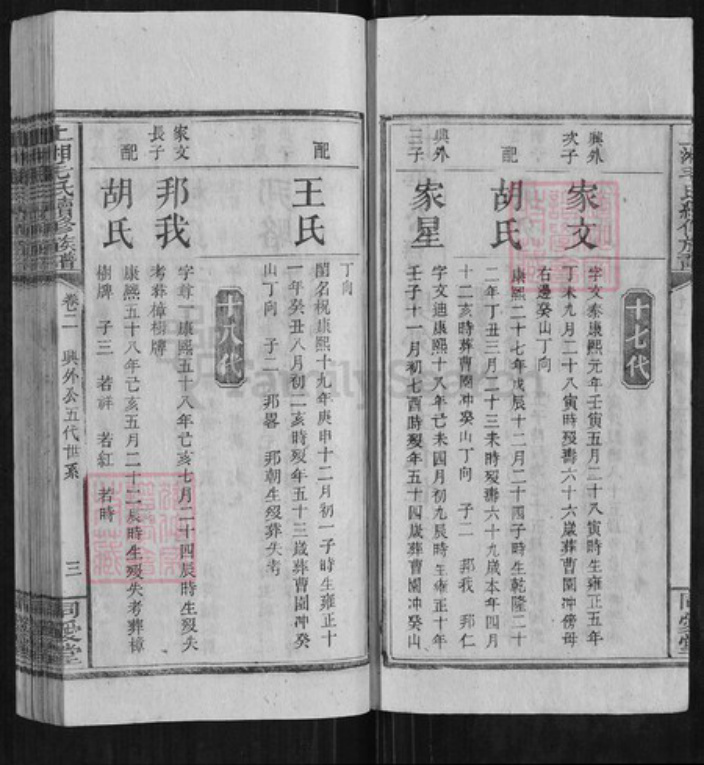 十七代
興外
次子
家文
字文泰康熙元年壬寅五月二十八寅時生雍正五年
丁未九月二十八寅時殁壽六十六歲葬曹園冲傍母
右邊癸山丁向
配
胡氏
康熙二十七年戊辰十二月二十四子時生乾隆二十
二年丁丑三月二十三未時殁壽六十九歲本年四月
十二亥時葬曹園冲癸山丁向 子二 邦我 邦仁
興外
三子
家星
字文迪康熙十八年己未四月初九辰時生雍正十年
壬子十一月初七酉時殁年五十四歲葬曹園冲癸山
丁向
配
王氏
閨名祝康熙十九年庚申十二月初一子時生雍正十
一年癸丑八月初二亥時殁年五十三歲葬曹園冲癸
山丁向 子二 邦畧 邦朝生殁葬失考
十八代
家文
長子
邦我
字尊一康熙五十八年己亥七月二十四辰時生殁失
考葬樟樹牌
配
胡氏
康熙五十八年己亥五月二十二辰時生殁失考葬樟
樹牌 子三 若祥 若紅 若時
上湘毛氏續修族譜
卷二
興外公五代世系
三
同愛堂